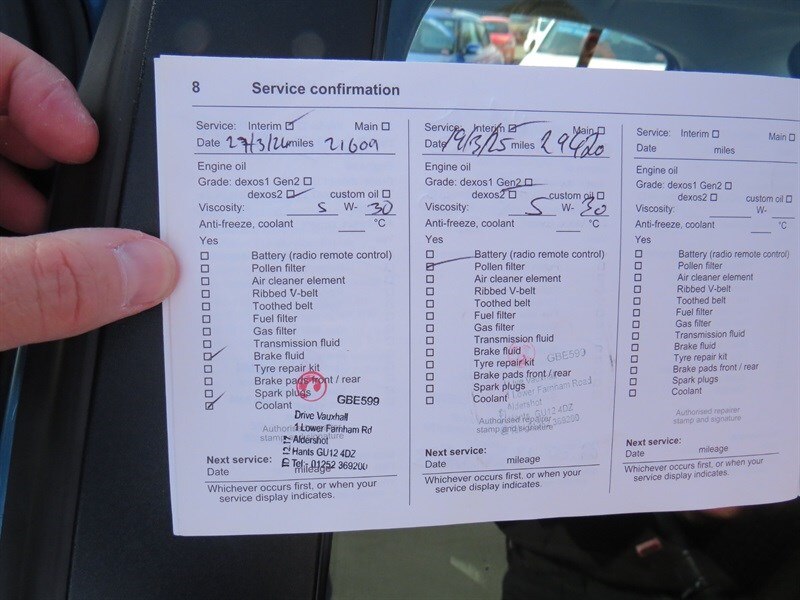 8 Service confirmation
Service: Interim ☑ Main ☐
Date 27/3/24 miles 21609
Engine oil
Grade: dexos1 Gen2 ☐
dexos2 ☑ custom oil ☐
Viscosity: 5 W- 30
Anti-freeze, coolant ___ °C
Yes
☐ Battery (radio remote control)
☐ Pollen filter
☐ Air cleaner element
☐ Ribbed V-belt
☐ Toothed belt
☐ Fuel filter
☐ Gas filter
☐ Transmission fluid
☑ Brake fluid
☐ Tyre repair kit
☐ Brake pads front / rear
☐ Spark plugs
☑ Coolant
GBE599
Drive Vauxhall
1 Lower Farnham Rd
Aldershot
Hants GU12 4DZ
Tel:- 01252 369200
Authorised repairer
stamp and signature
Next service:
Date mileage
Whichever occurs first, or when your
service display indicates.
Service: Interim ☑ Main ☐
Date 19/3/25 miles 29420
Engine oil
Grade: dexos1 Gen2 ☑
dexos2 ☐ custom oil ☐
Viscosity: 5 W- 30
Anti-freeze, coolant ___ °C
Yes
☐ Battery (radio remote control)
☑ Pollen filter
☐ Air cleaner element
☐ Ribbed V-belt
☐ Toothed belt
☐ Fuel filter
☐ Gas filter
☐ Transmission fluid
☐ Brake fluid
☐ Tyre repair kit
☐ Brake pads front / rear
☐ Spark plugs
☐ Coolant
GBE599
1 Lower Farnham Road
Aldershot
GU12 4DZ
369200
Authorised repairer
stamp and signature
Next service:
Date mileage
Whichever occurs first, or when your
service display indicates.
Service: Interim ☐ Main ☐
Date miles
Engine oil
Grade: dexos1 Gen2 ☐
dexos2 ☐ custom oil ☐
Viscosity: ___ W- ___
Anti-freeze, coolant ___ °C
Yes
☐ Battery (radio remote control)
☐ Pollen filter
☐ Air cleaner element
☐ Ribbed V-belt
☐ Toothed belt
☐ Fuel filter
☐ Gas filter
☐ Transmission fluid
☐ Brake fluid
☐ Tyre repair kit
☐ Brake pads front / rear
☐ Spark plugs
☐ Coolant
Authorised repairer
stamp and signature
Next service:
Date mileage
Whichever occurs first, or when your
service display indicates.